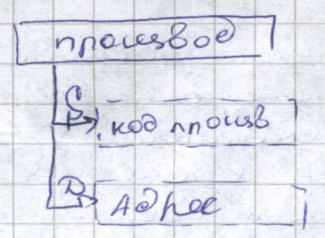 произвед
С
код произв
D
Адрес